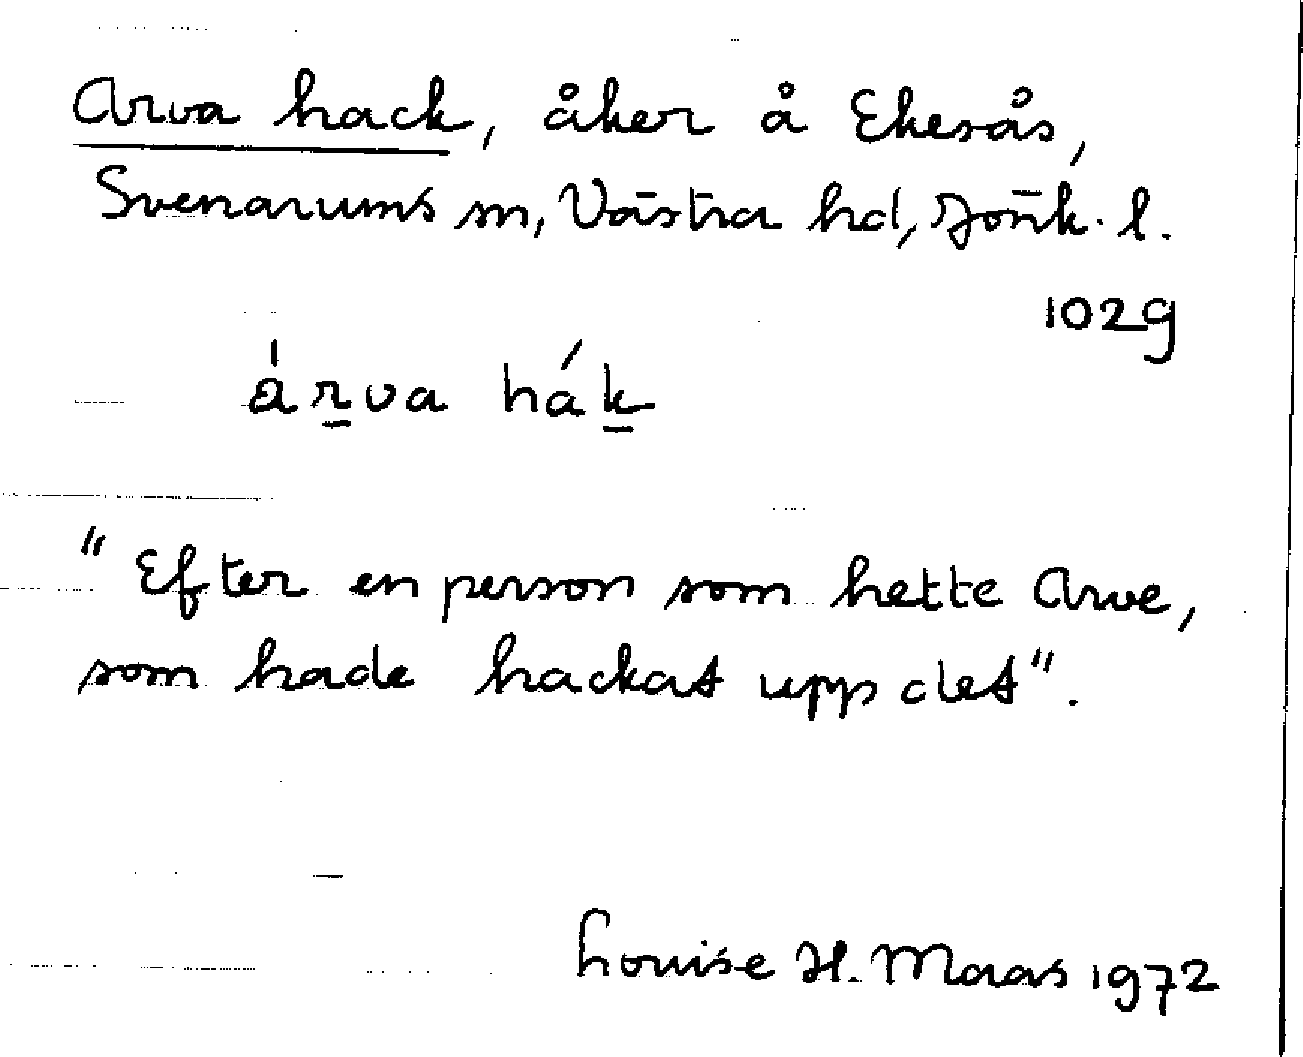 Arva hack, åker å Ekesås,
Svenarums sn, Västra hd, Jönk. l.
1029
árva hák
"Efter en person som hette Arve,
som hade hackat upp det".
Louise H. Maas 1972